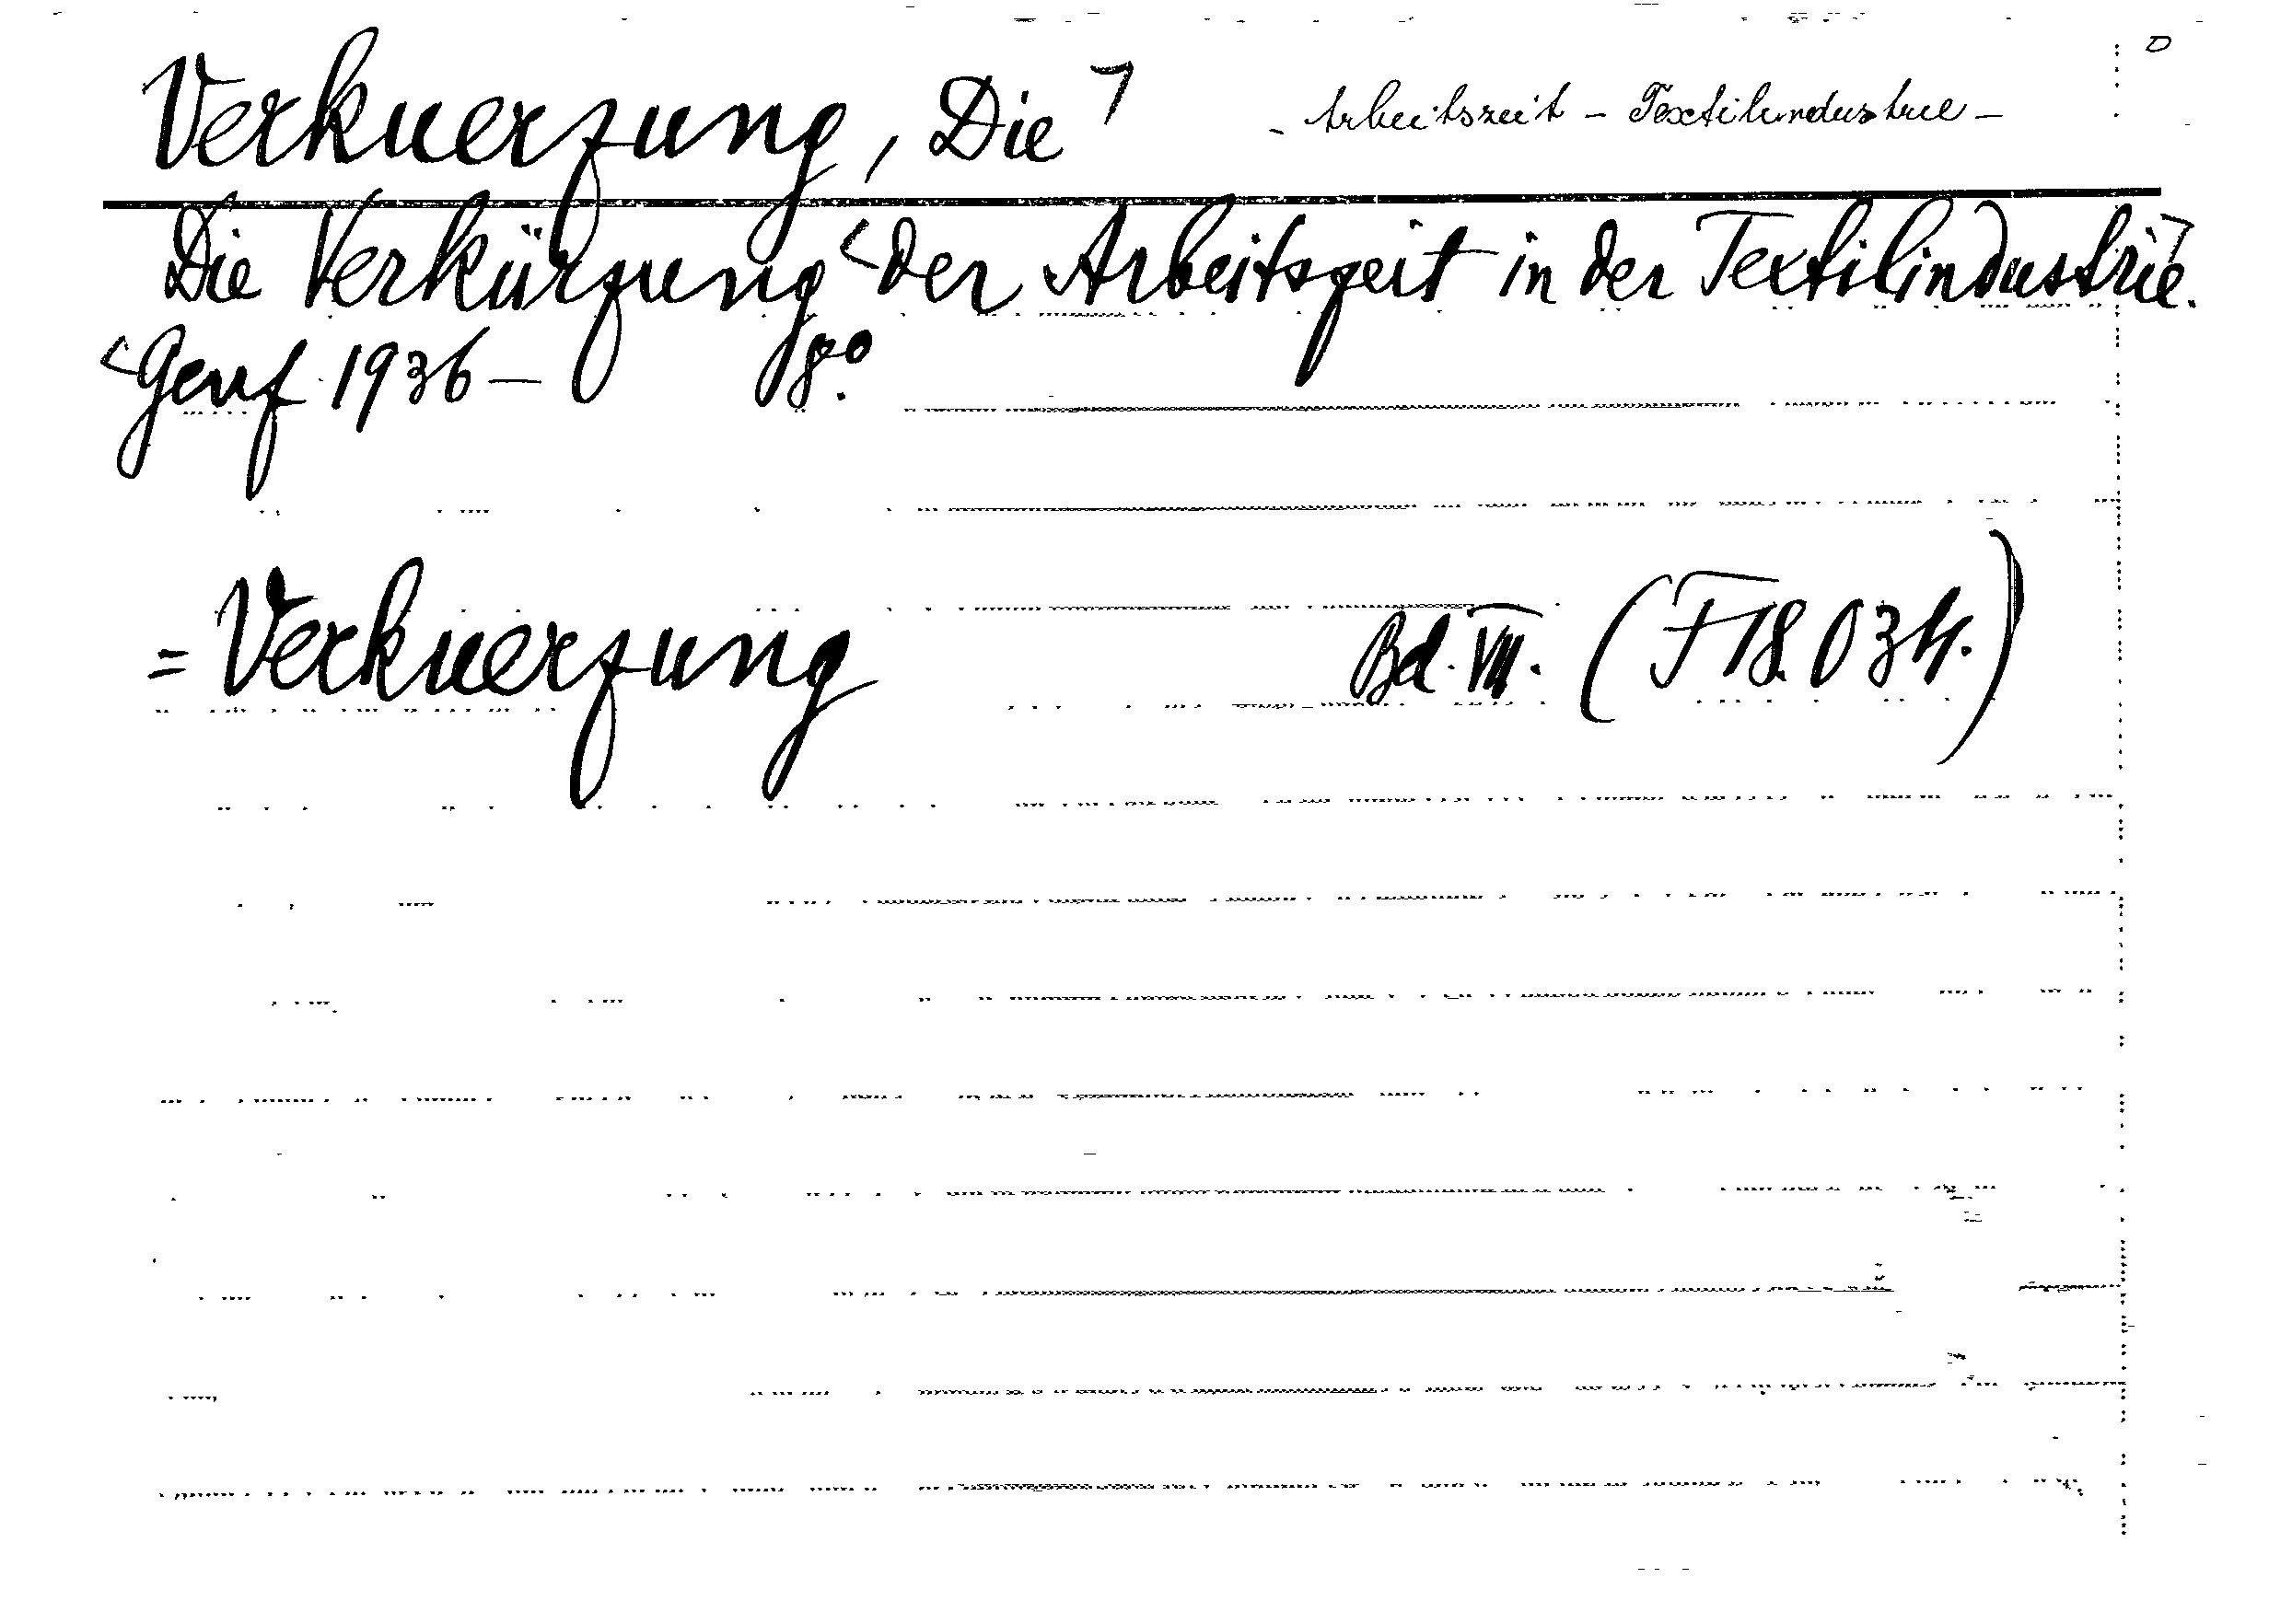 Verkuerzung, Die ⌉ - Arbeitszeit - Textilindustrie -
Die Verkürzung <der Arbeitszeit in der Textilindustrie.
<Genf 1936 — 8°.
= Verkuerzung Bd. VII. (F 18.034.)